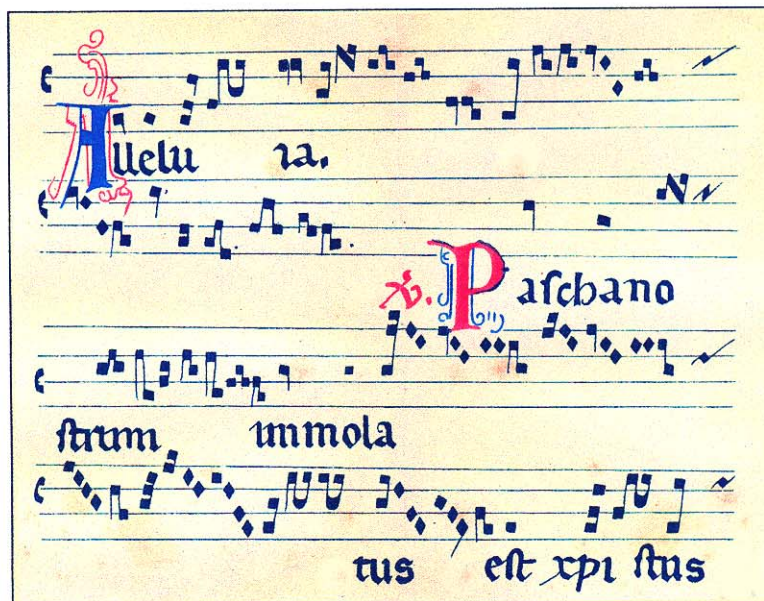 Allelu ia.
℣. Paſchano
ſtrum immola
tus eſt xpi ſtus